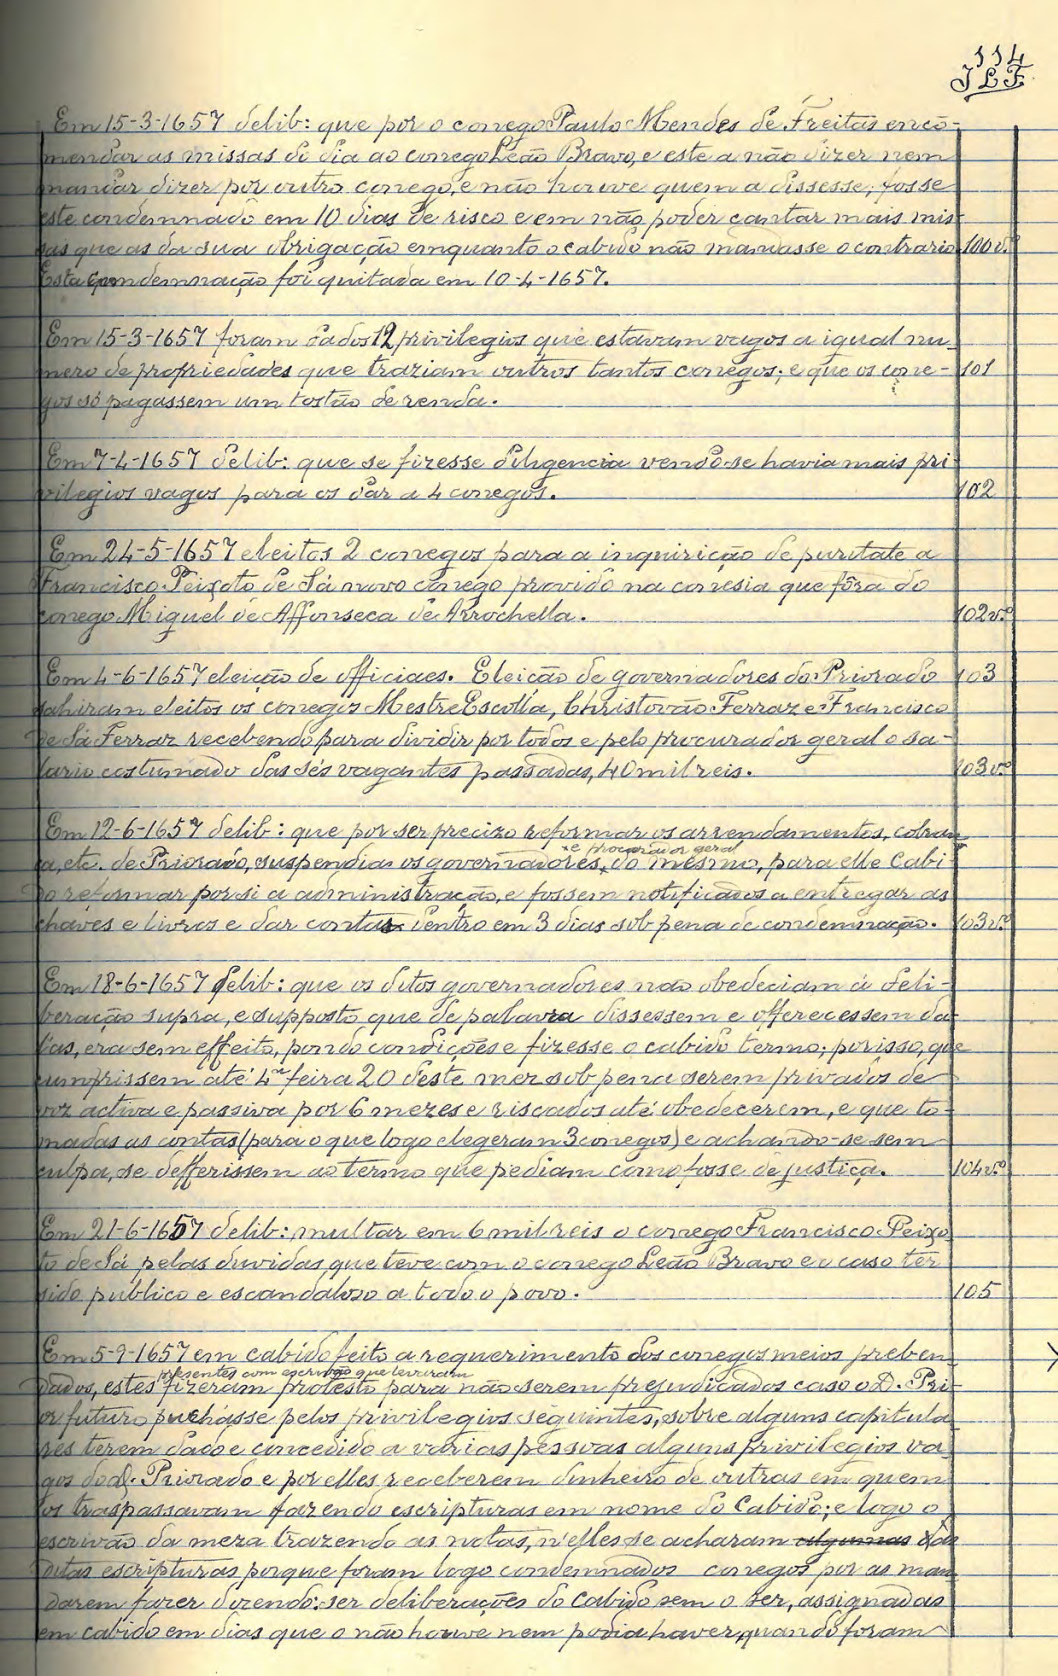 114
J L F
Em 15-3-1657 delib: que por o conego Paulo Mendes de Freitas enco-
mendar as missas do dia ao conego Leão Bravo, e este a não dizer nem
mandar dizer por outro conego, e não houve quem a dissesse, fosse
este condemnado em 10 dias de risco e em não poder cantar mais mis-
sas que as da sua obrigação emquanto o cabido não mandasse o contrario 100v.º
Esta condemnação foi quitada em 10-4-1657.
Em 15-3-1657 foram dados 12 privilegios que estavam vagos a igual nu-
mero de propriedades que traziam outros tantos conegos; e que os cone- 101
gos só pagassem um tostão de renda.
Em 7-4-1657 delib: que se fizesse diligencia vendo-se havia mais pri-
vilegios vagos para os dar a 4 conegos. 102
Em 24-5-1657 eleitos 2 conegos para a inquirição de puritate a
Francisco Peixoto de Sá novo conego provido na conesia que fôra do
conego Miguel de Affonseca de Arrochella. 102v.º
Em 4-6-1657 eleição de officiaes. Eleição de governadores do Priorado 103
sahiram eleitos os conegos Mestre Escolla, Christovão Ferraz e Francisco
de Sá Ferraz recebendo para dividir por todos e pelo procurador geral o sa-
lario costumado das sés vagantes passadas, 40 mil reis. 103v.º
Em 12-6-1657 delib: que por ser precizo reformar os arrendamentos, cobran-
ça, etc. de Priorado, suspendia os governadores, e procurador geral do mesmo, para elle Cabi-
do reformar por si a administração, e fossem notificados a entregar as
chaves e livros e dar contas dentro em 3 dias sob pena de condemnação. 103v.º
Em 18-6-1657 delib: que os ditos governadores nao obedeciam á deli-
beração supra, e supposto que de palavra dissessem e offerecessem da-
l'as, era sem effeito, pondo condições e fizesse o cabido termo; por isso, que
cumprissem até 4ª feira 20 deste mez sob pena serem privados de
voz activa e passiva por 6 mezes e riscados até obedecerem, e que to-
madas as contas (para o que logo elegeram 3 conegos) e achando-se sem
culpa, se defferissem ao termo que pediam como fosse de justiça. 104v.º
Em 21-6-1657 delib: multar em 6 mil reis o conego Francisco Peixo-
to de Sá pelas duvidas que teve com o conego Leão Bravo e o caso ter
sido publico e escandaloso a todo o povo. 105
Em 5-9-1657 em cabido feito a requerimento dos conegos meios preben-
dados, estes presentes com escrivão que fizeram protesto para não serem prejudicados caso o D. Pri-
or futuro puchasse pelos privilegios seguintes, sobre alguns capitula-
res terem dado e concedido a varias pessoas alguns privilegios va-
gos do d. Priorado e por elles receberem dinheiro de outras em quem
os traspassavam fazendo escripturas em nome do Cabido; e logo o
escrivão da meza trazendo as notas, n'elles se acharam algumas das
ditas escripturas porque foram logo condemnados conegos por as man-
darem fazer dizendo: ser deliberações do Cabido sem o ser, assignadas
em cabido em dias que o não houve nem podia haver, quando foram